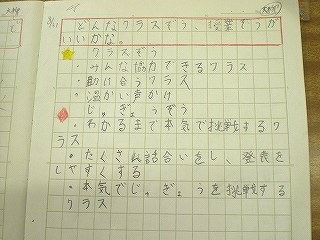 どんなクラスぞう、授業ぞうが
いいかな。
クラスぞう
・みんな協力できるクラス
・助け合うクラス
・温かい声かけ
じゅぎょうぞう
・わかるまで本気で挑戦するク
ラス
・たくさん話合いをし、発表を
しやすくする
・本気でじゅぎょうを挑戦する
クラス